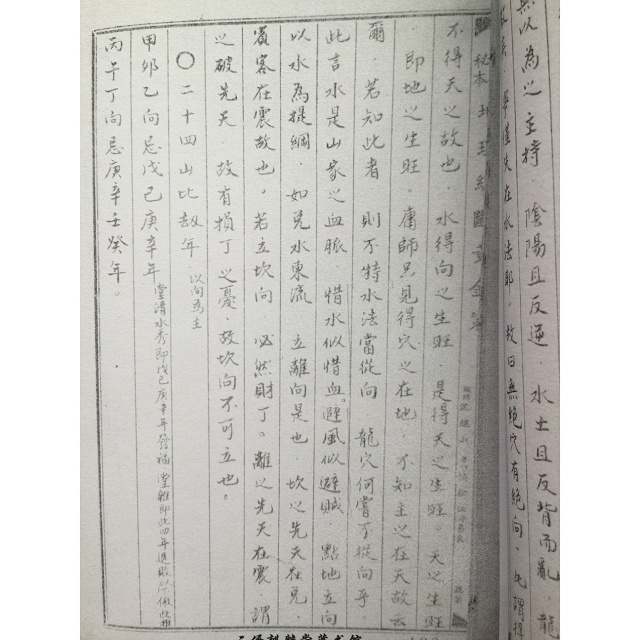 無以為之主持．陰陽且反逆．水土且反背而亂．龍
在水法耶．故曰無絕穴有絕向．此謂
不得天之故也．水得向之生旺．是得天之生旺．天之生旺
即地之生旺．庸師只見得穴之在地．不知主之在天故云
爾．若知此者．則不特水法當從向．龍穴何嘗不從向乎
此言水是山家之血脈．惜水似惜血．避風似避賊．點地立向
以水為提綱．如兌水東流．立離向是也．坎之先天在兌．
賓客在震故也．若立坎向．必然財丁．離之先天在震．謂
之破先天．故有損丁之憂．故坎向不可立也．
○二十四山比劫年．以向為主
甲卯乙向忌戊己庚辛年．堂清水秀即戊己庚辛年發福堂雜即此四年進敗以
丙午丁向忌庚辛壬癸年．